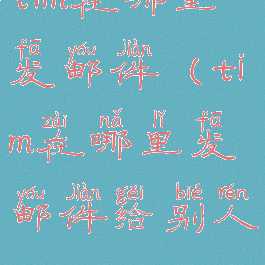 tim在哪里
fā yóu jiàn
发邮件(ti
zài nǎ lǐ fā
m在哪里发
yóu jiàn gěi bié rén
邮件给别人